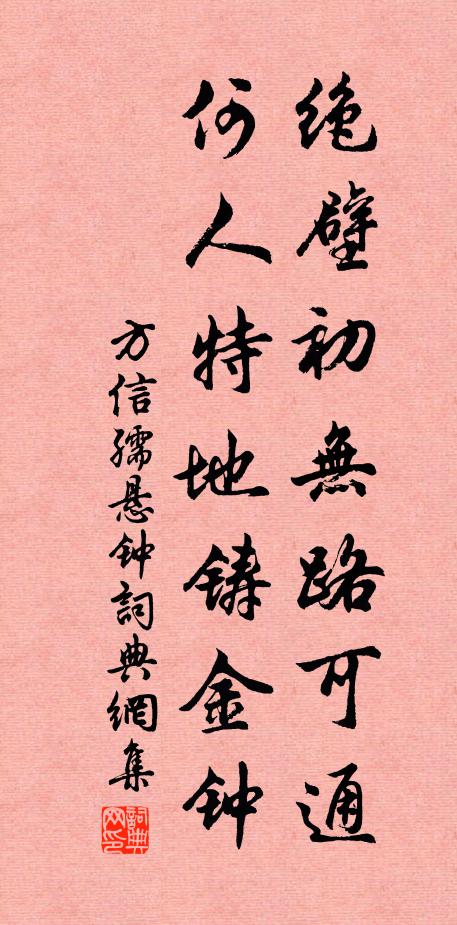 绝壁初無路可通
何人特地铸金钟
方信孺悬钟詞典網集
詞典网印